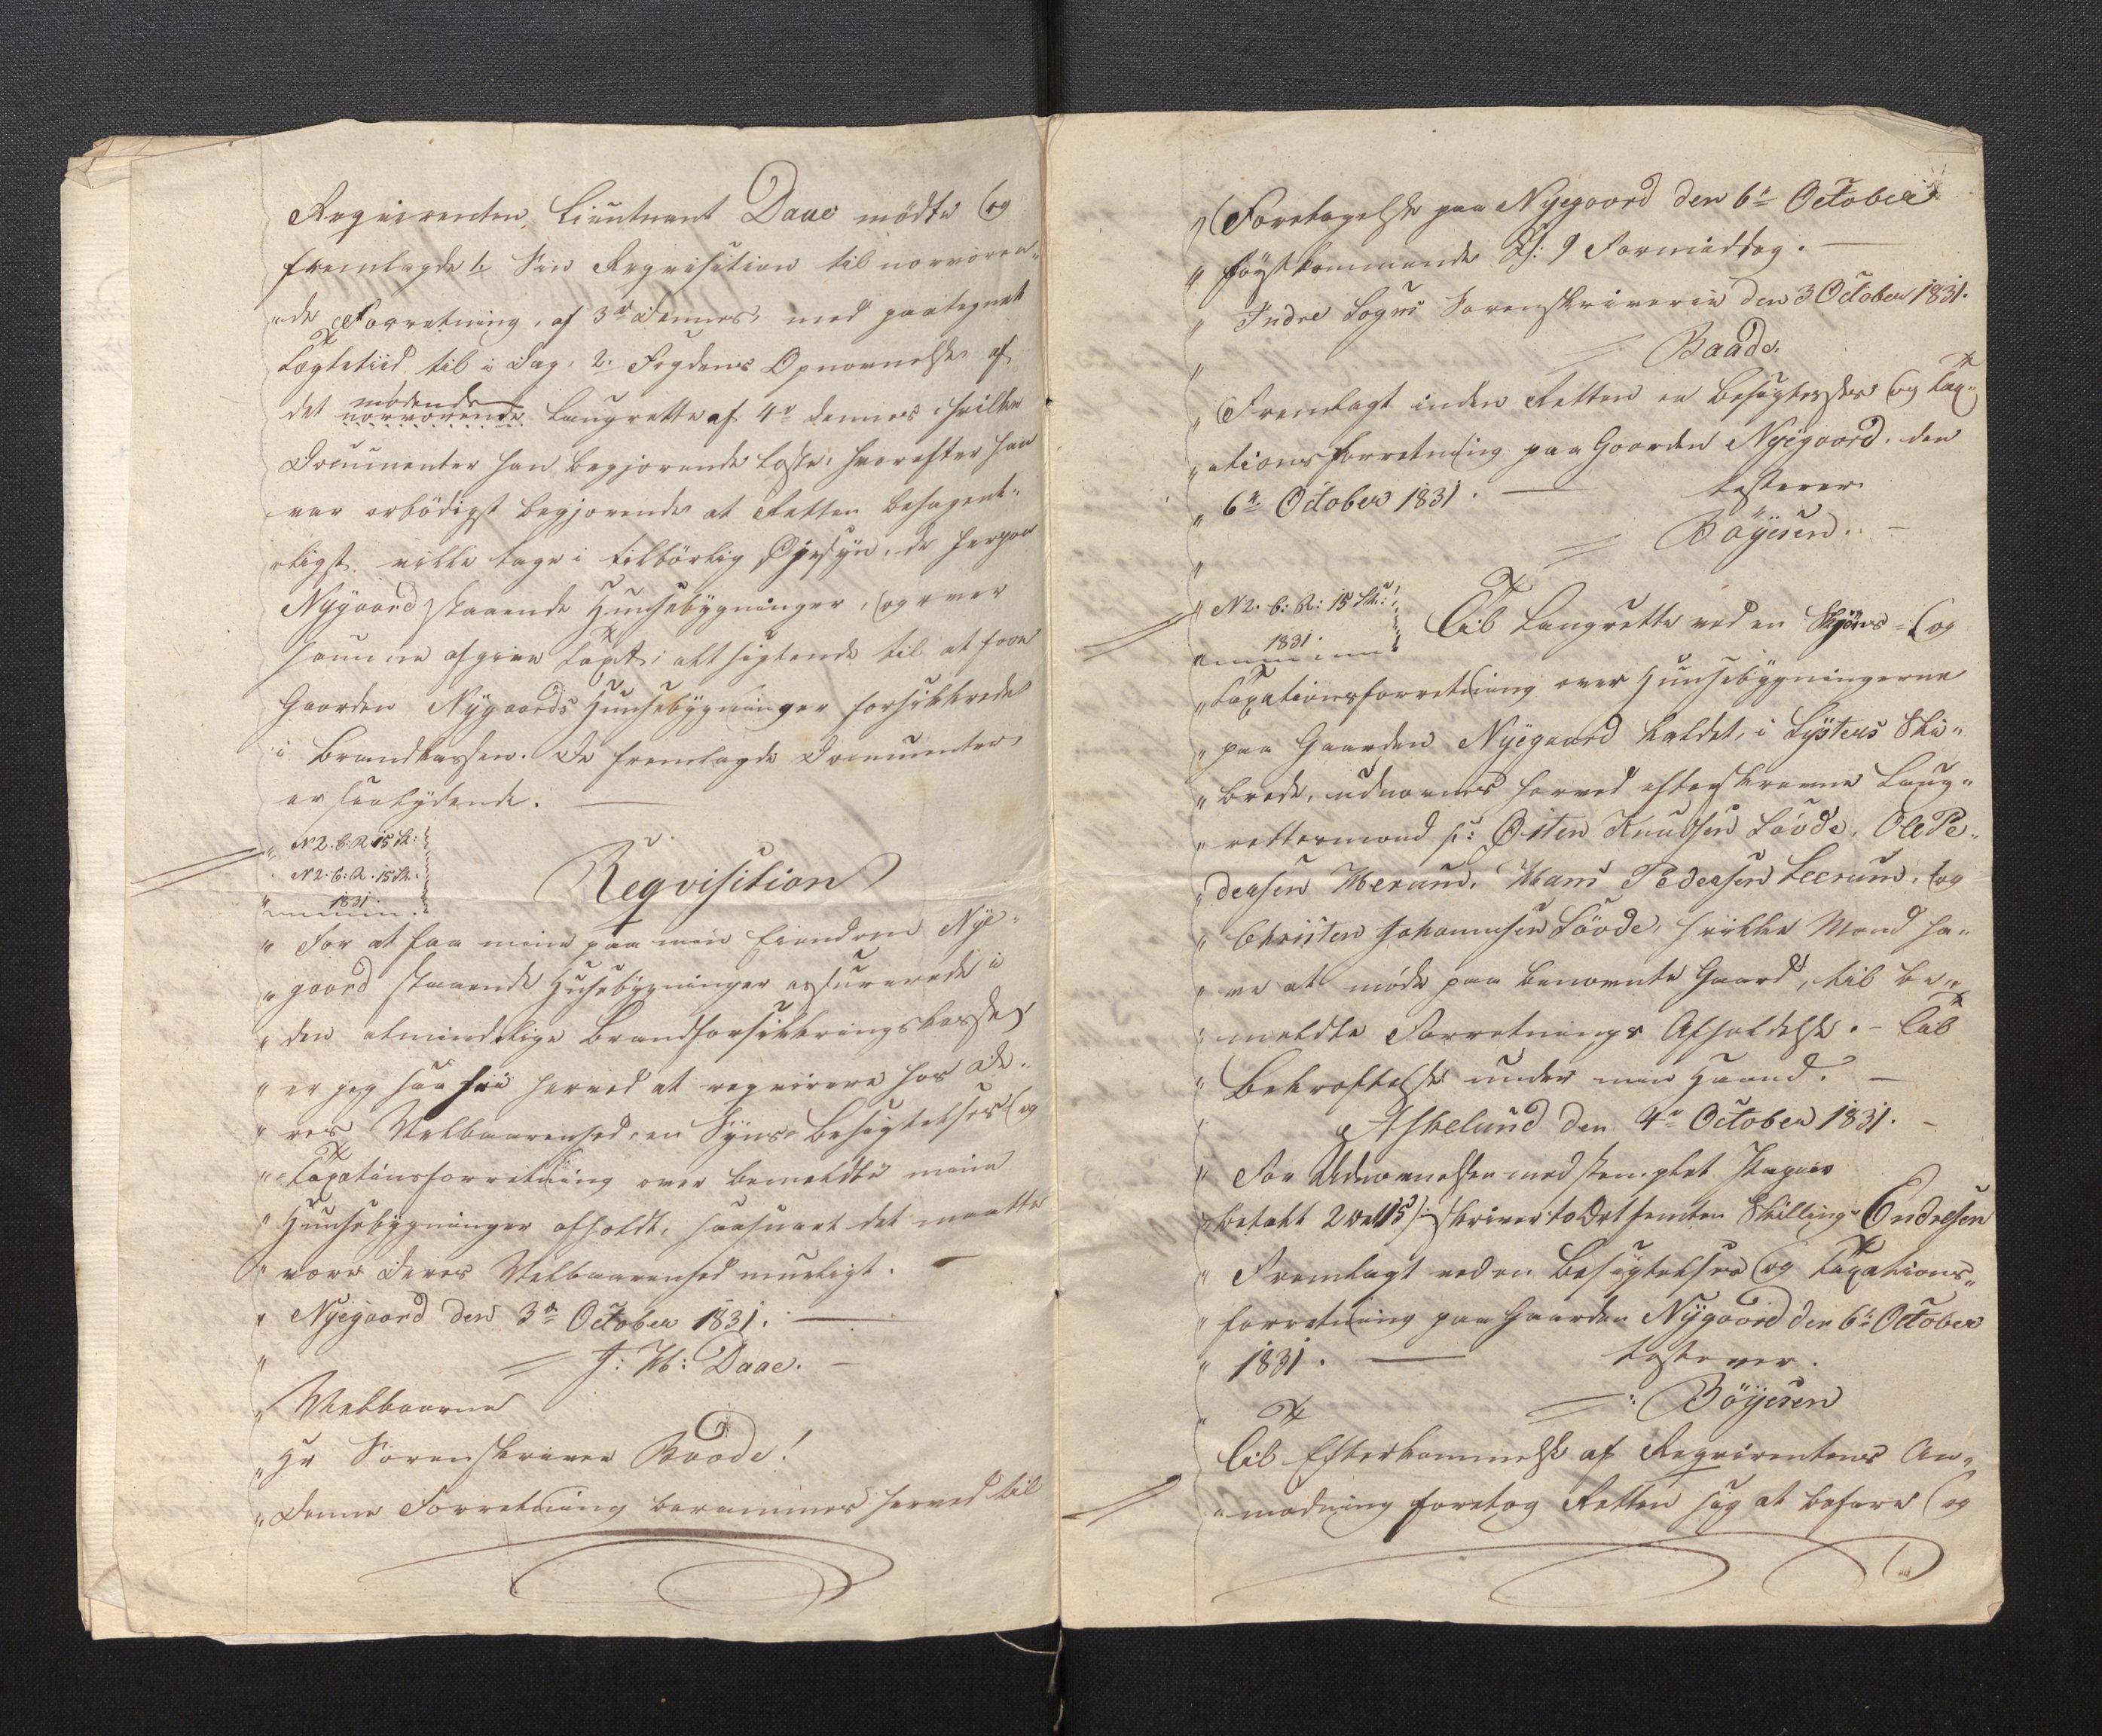 Reqvirenten, Lieutnant Daae mödte og
fremlagde 1. Sin Reqvisition til nærværen„
„de Forretning, af 3de dennes, med paategnet
Tægtetiid til i Dag, 2. Fogdens Opnævnelse af
det mödende nærværende Laugrette af 4de dennes, hvilke
Documenter han begjærende læste, hvorefter han
var ærbödigst begjærende at Retten behagent„
„ligst ville tage i tilbörlig Öyesyn, de herpaa
Nÿgaard staaende Huusebÿgninger, og over
samme afgive Taxt; alt sigtende til at faae
Gaarden Nÿgaards Huusebÿgninger forsikkrede
i Brandkassen. De fremlagde Documenter
er saalydende. —
„ N 2. C: R. 15 Sk:
„ N 2. C: R. 15 Sk.
„ 1831.
Reqvisition
„ For at faa mine paa min Eiendom Nÿe„
„ gaard staaende Husebÿgninger assurerede i
„ den almindelige Brandforsikkringskasse,
„ er jeg saa frie herved at reqvirere hos De„
„ res Velbaarenhed, en Sÿns, Besigtelses og
„ Taxationsforretning over bemeldte mine
„ Huusebÿgninger afholdt, saasnart det maatte
„ være Deres Velbaarenhed mueligt. —
„ Nÿegaard den 3de October 1831. —
„ J: W: Daae. —
„ Velbaarne
„ Hr Sorenskriver Baade!
„ Denne Forretning berammes herved til
„ Foretagelse paa Nÿegaard den 6te October
„ förstkommende Kl: 9 Formiddag. —
„ Indre Sogns Sorenskriverie den 3 October 1831.
„ Baade.
„ Fremlagt inden Retten en Besigtelses og Tax„
„ ationsforretning paa Gaarden Nÿegaard, den
„ 6te October 1831. — testerer
„ Böÿesen. —
„ N 2. C: R: 15 Sk:
„ 1831.
Til Laugrette ved en Skjöns- og
„ Taxationsforretning over Huusebÿgningerne
„ paa Gaarden Nÿegaard kaldet, i Lÿsters Ski„
„ brede, udnævnes herved efterskrevne Laug„
„ rettesmænd s: Østen Knudsen Lövde, Ole Pe„
„ dersen Merum, Hans Pedersen Leerum, og
„ Christen Johannesen Lövde, hvilke Mænd ha„
„ ve at möde paa benævnte Gaard, til be„
„ meldte Forretnings Afholdelse. — Til
„ Bekræftelse under min Haand. —
„ Askelund den 4de October 1831. —
„ For Udnævnelsen med stemplet Papiir
„ betalt 2 ort 15 s skriver to Ort femten Skilling. Endresen
„ Fremlagt ved en Besigtelses og Taxations„
„ forretning paa Gaarden Nÿgaard den 6te October
„ 1831. — testerer.
„ : Böÿesen
Til Efterkommelse af Reqvirentens An„
„modning foretog Retten sig at befare og